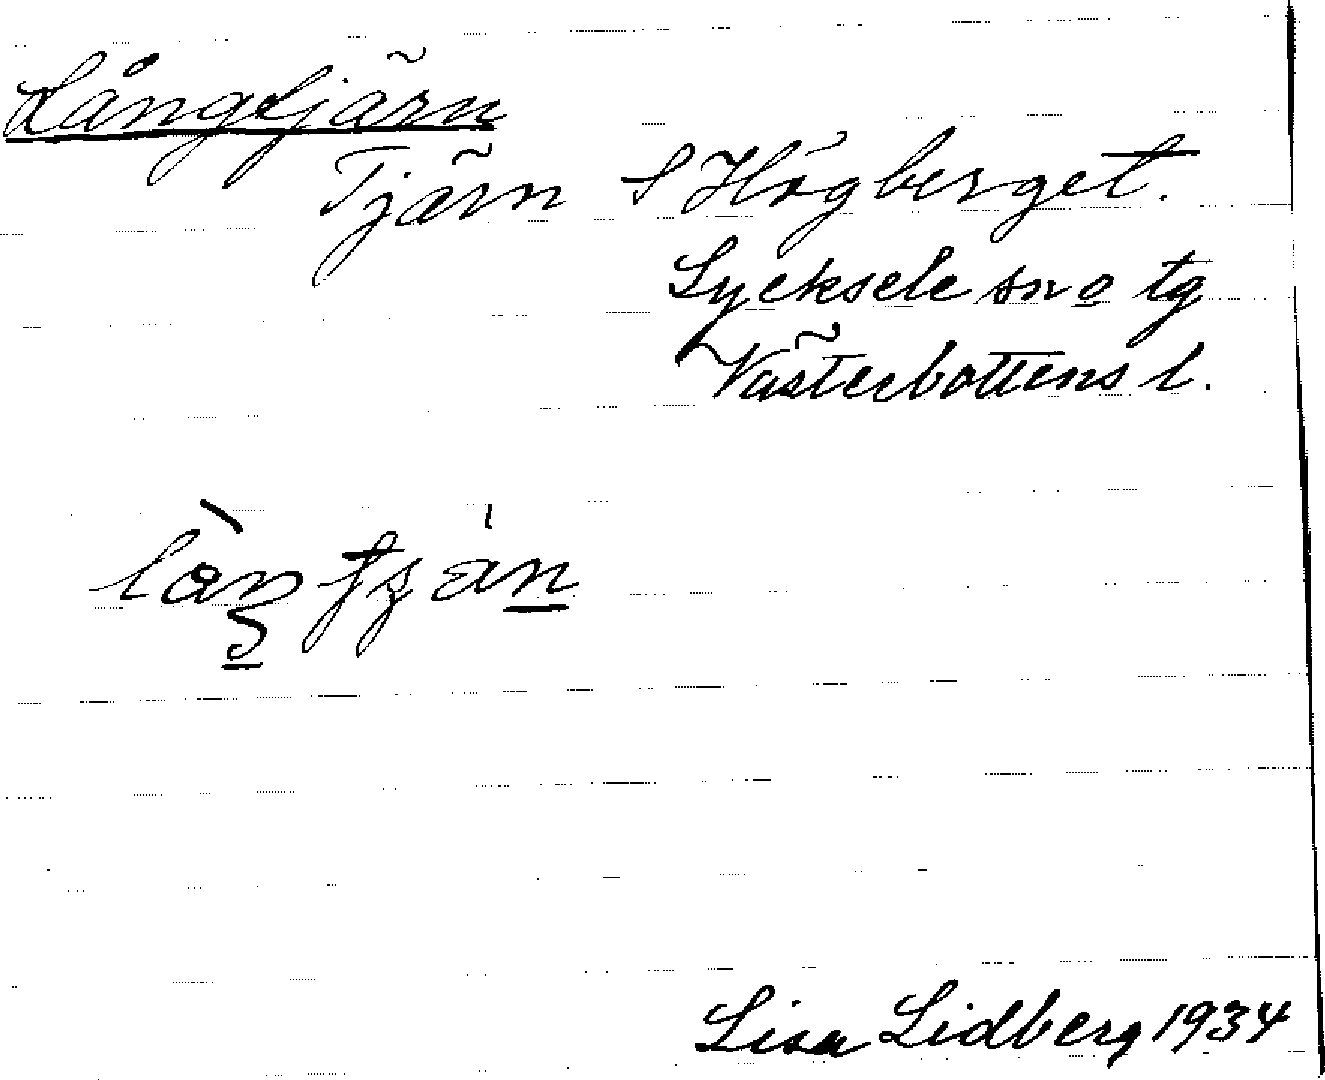 Långtjärn
Tjärn S Högberget.
Lycksele sn o tg
Västerbottens l.
Lisa Lidberg 1934